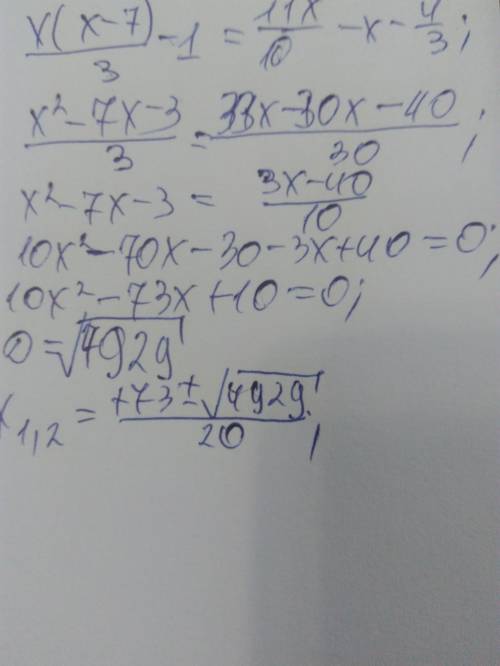 x(x-7)/3 - 1 = 11x/10 - x - 4/3;
x²-7x-3/3 = 33x-30x-40/30;
x²-7x-3 = 3x-40/10
10x²-70x-30-3x+40=0;
10x²-73x+10=0;
D=√4929
x1,2 = +73±√4929/20;